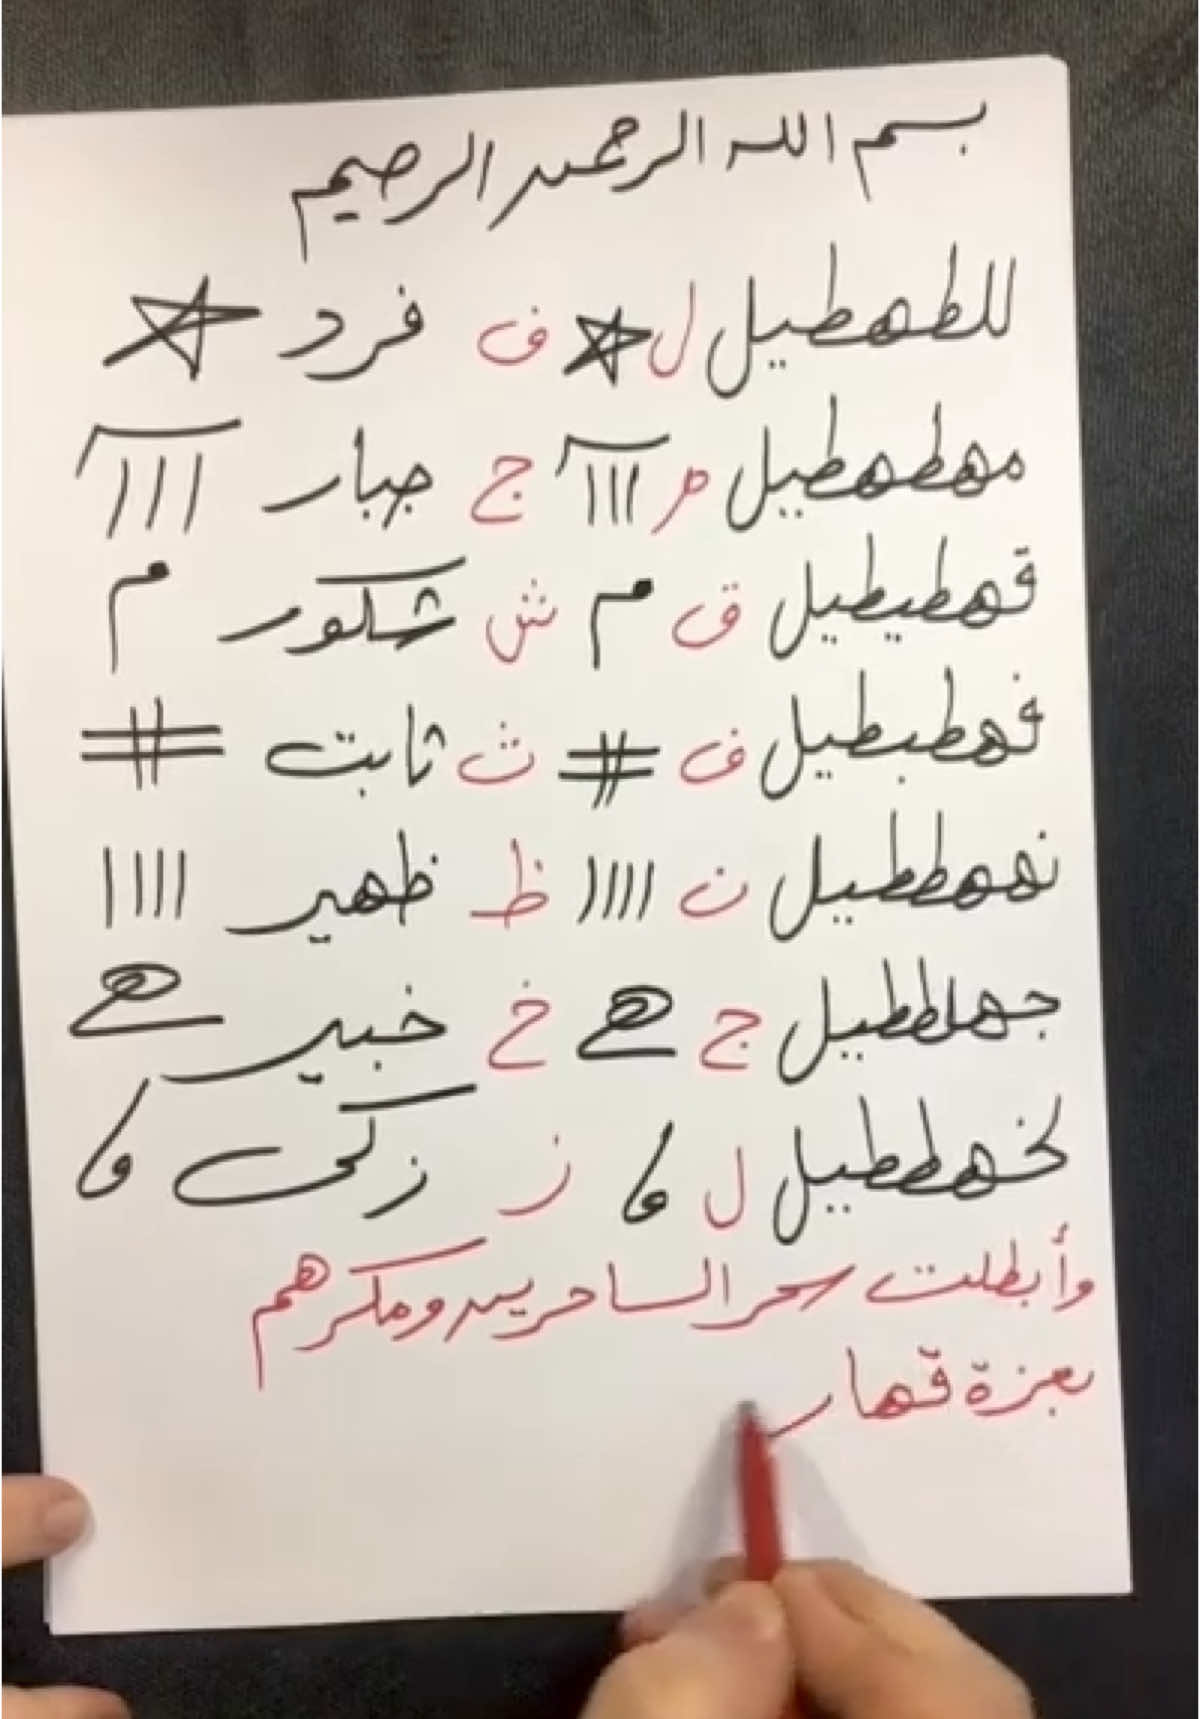 بسم الله الرحمن الرحيم
للطهطيل ل ☆ ف فرد ☆
مهطهطيل م ااا ج جبار ااا
قهطيطيل ق م ش شكور م
فهطبطيل ف # ث ثابت #
نههططيل ن اااا ظ ظهير اااا
جهلططيل ج ه خ خبير ه
لخهططيل ل و ز زكى و
وأبطلت سحر الساحرين ومكرهم
بعزة قهار